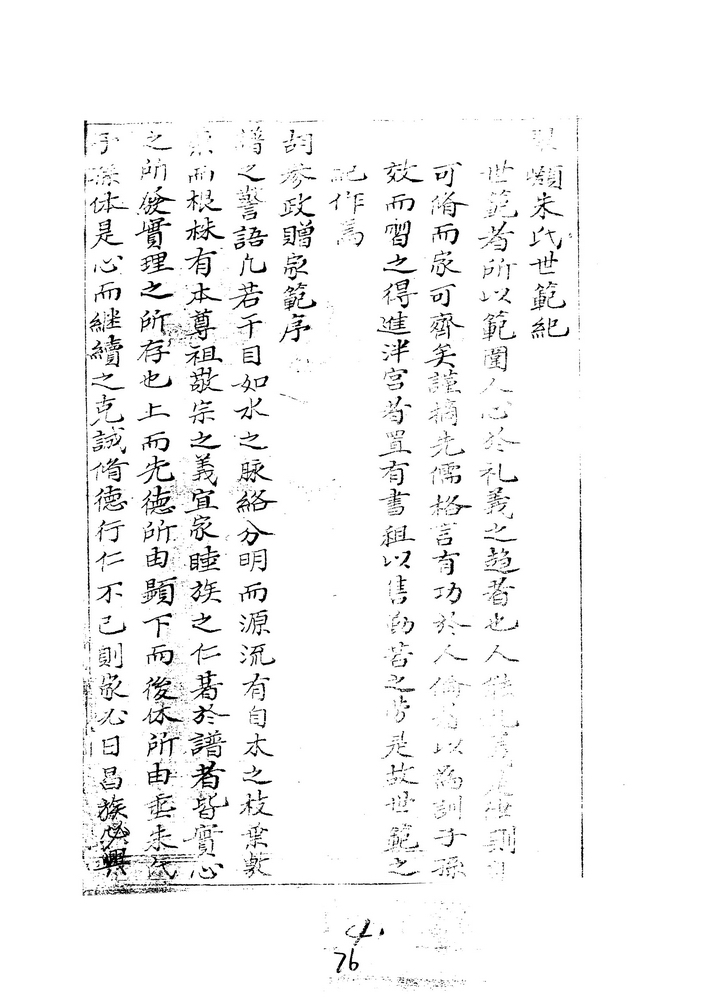 巔朱氏世範紀
世範者所以範圍人心於礼義之趨者也人能礼義是則身
可脩而家可齊矣謹摘先儒格言有功於人倫者以為訓子孫
效而習之得進泮宮者置有書租以售勤苦之勞是故世範之
記作焉
胡參政贈家範序
譜之警語凡若干目如水之脉絡分明而源流有自木之枝葉敷
而根株有本尊祖敬宗之義宜家睦族之仁著於譜者皆實心
之所發實理之所存也上而先德所由顕下而後休所由垂朱氏
子孫体是心而継續之克誠脩德行仁不已則家必日昌族必興
76